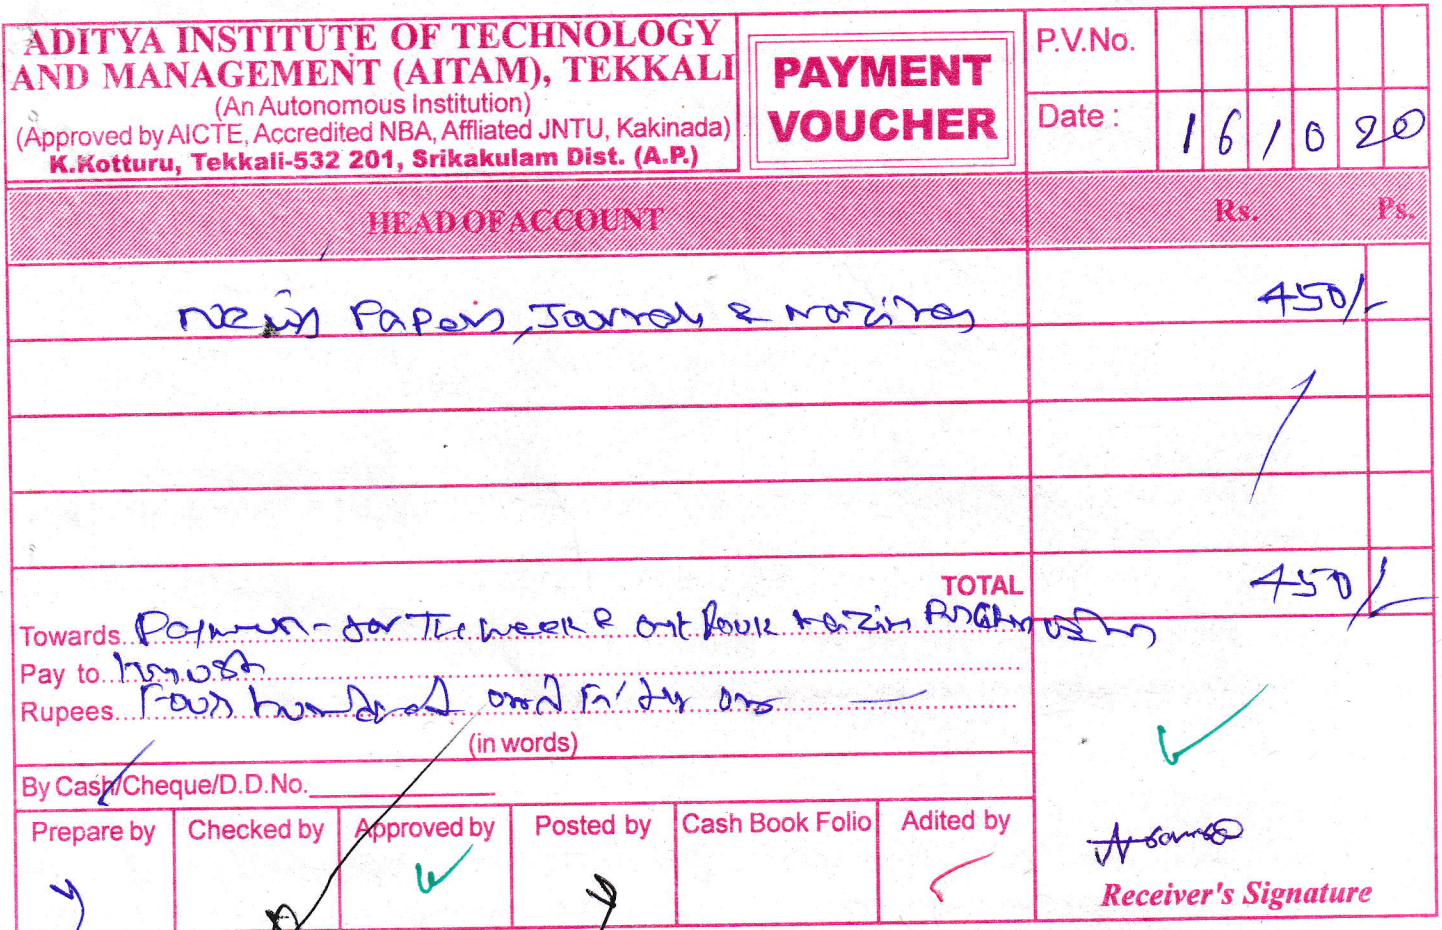 ADITYA INSTITUTE OF TECHNOLOGY
AND MANAGEMENT (AITAM), TEKKALI
(An Autonomous Institution)
(Approved by AICTE, Accredited NBA, Affliated JNTU, Kakinada)
K.Kotturu, Tekkali-532 201, Srikakulam Dist. (A.P.)
PAYMENT
VOUCHER
P.V.No.
Date : 16/0 20
HEAD OF ACCOUNT Rs. Ps.
News Papers, & 450/-
TOTAL 450/-
Towards for The week &
Pay to
Rupees Four hundred and Fifty
(in words)
By Cash/Cheque/D.D.No.
Prepare by Checked by Approved by Posted by Cash Book Folio Adited by
Receiver's Signature